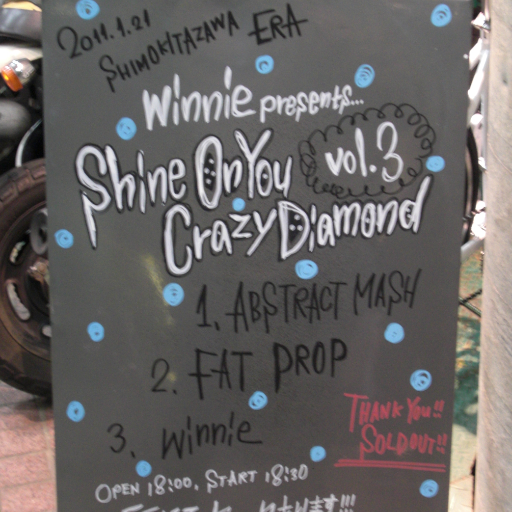 2011.1.21
SHIMOKITAZAWA ERA
Winnie presents...
Shine On You
vol.3
Crazy Diamond
1. ABSTRACT MASH
2. FAT PROP
3. Winnie
THANK YOU!!
SOLDOUT!!
OPEN 18:00, START 18:30